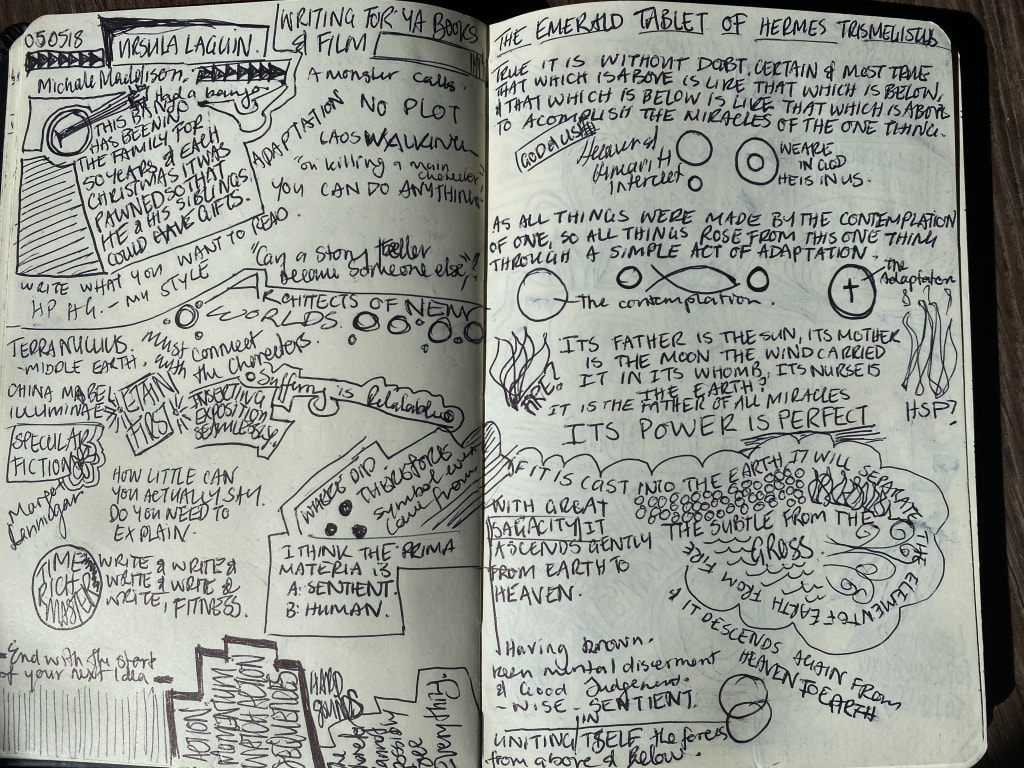 050518
URSULA LAGUIN.
WRITING FOR YA BOOKS
& FILM
Michale Madelison.
Had a banjo
THIS BANJO
HAS BEEN IN
THE FAMILY FOR
50 YEARS & EACH
CHRISTMAS IT WAS
PAWNED SO THAT
HE & HIS SIBLINGS
COULD HAVE GIFTS.
A monster calls.
NO PLOT
ADAPTATION
CAOS WALKING
"on killing a main
character"
YOU CAN DO ANYTHING.
WRITE WHAT YOU WANT TO READ
- MY STYLE
"Can a story teller
become someone else"?
ARCHITECTS OF NEW
WORLDS.
TERRA NULLIUS
-MIDDLE EARTH.
Must connect
with the characters.
CHINA MABEL
ILLUMINATE
ETAIN
FIRST
INSERTING
EXPOSITION
SEAMLESSLY.
Suffering is Relatable
SPECULAR
FICTION
Marget
Lannigan
HOW LITTLE CAN
YOU ACTUALLY SAY.
DO YOU NEED TO
EXPLAIN.
WHERE DID
THEREFORE
symbol
come from
I THINK THE PRIMA
MATERIA IS
A: SENTIENT.
B: HUMAN.
TIME
RICH
MASTER
WRITE & WRITE &
WRITE & WRITE &
WRITE, FITNESS.
End with the start
of your next Idea
ACTION.
MOMENTUM
WATCH ACTION
SEQUENCES
HARD
The
See
Everything.
THE EMERALD TABLET OF HERMES TRISMELISTUS
TRUE IT IS WITHOUT DOBT, CERTAIN & MOST TRUE
THAT WHICH IS ABOVE IS LIKE THAT WHICH IS BELOW,
& THAT WHICH IS BELOW IS LIKE THAT WHICH IS ABOVE
TO ACOMPLISH THE MIRACLES OF THE ONE THING.
GOD ELIUS
Heaven &
Humanity
Intercet
WE ARE
IN GOD
HE IS IN US.
AS ALL THINGS WERE MADE BY THE CONTEMPLATION
OF ONE, SO ALL THINGS ROSE FROM THIS ONE THING
THROUGH A SIMPLE ACT OF ADAPTATION.
The contemplation.
the
Adaptation
ITS FATHER IS THE SUN, ITS MOTHER
IS THE MOON THE WIND CARRIED
IT IN ITS WHOMB, ITS NURSE IS
THE EARTH?
IT IS THE FATHER OF ALL MIRACLES
FIRE?
HSP?
ITS POWER IS PERFECT
IF IT IS CAST INTO THE EARTH IT WILL SEPARATE
THE ELEMENT OF EARTH FROM FIRE
THE SUBTLE FROM THE
GROSS.
WITH GREAT
SAGACITY IT
ASCENDS GENTLY
FROM EARTH TO
HEAVEN.
& IT DESCENDS AGAIN FROM
HEAVEN TO EARTH
Having brown.
keen mental discerment
& Good Judgement.
- WISE - SENTIENT.
UNITING IN ITSELF the forces
from above & below.